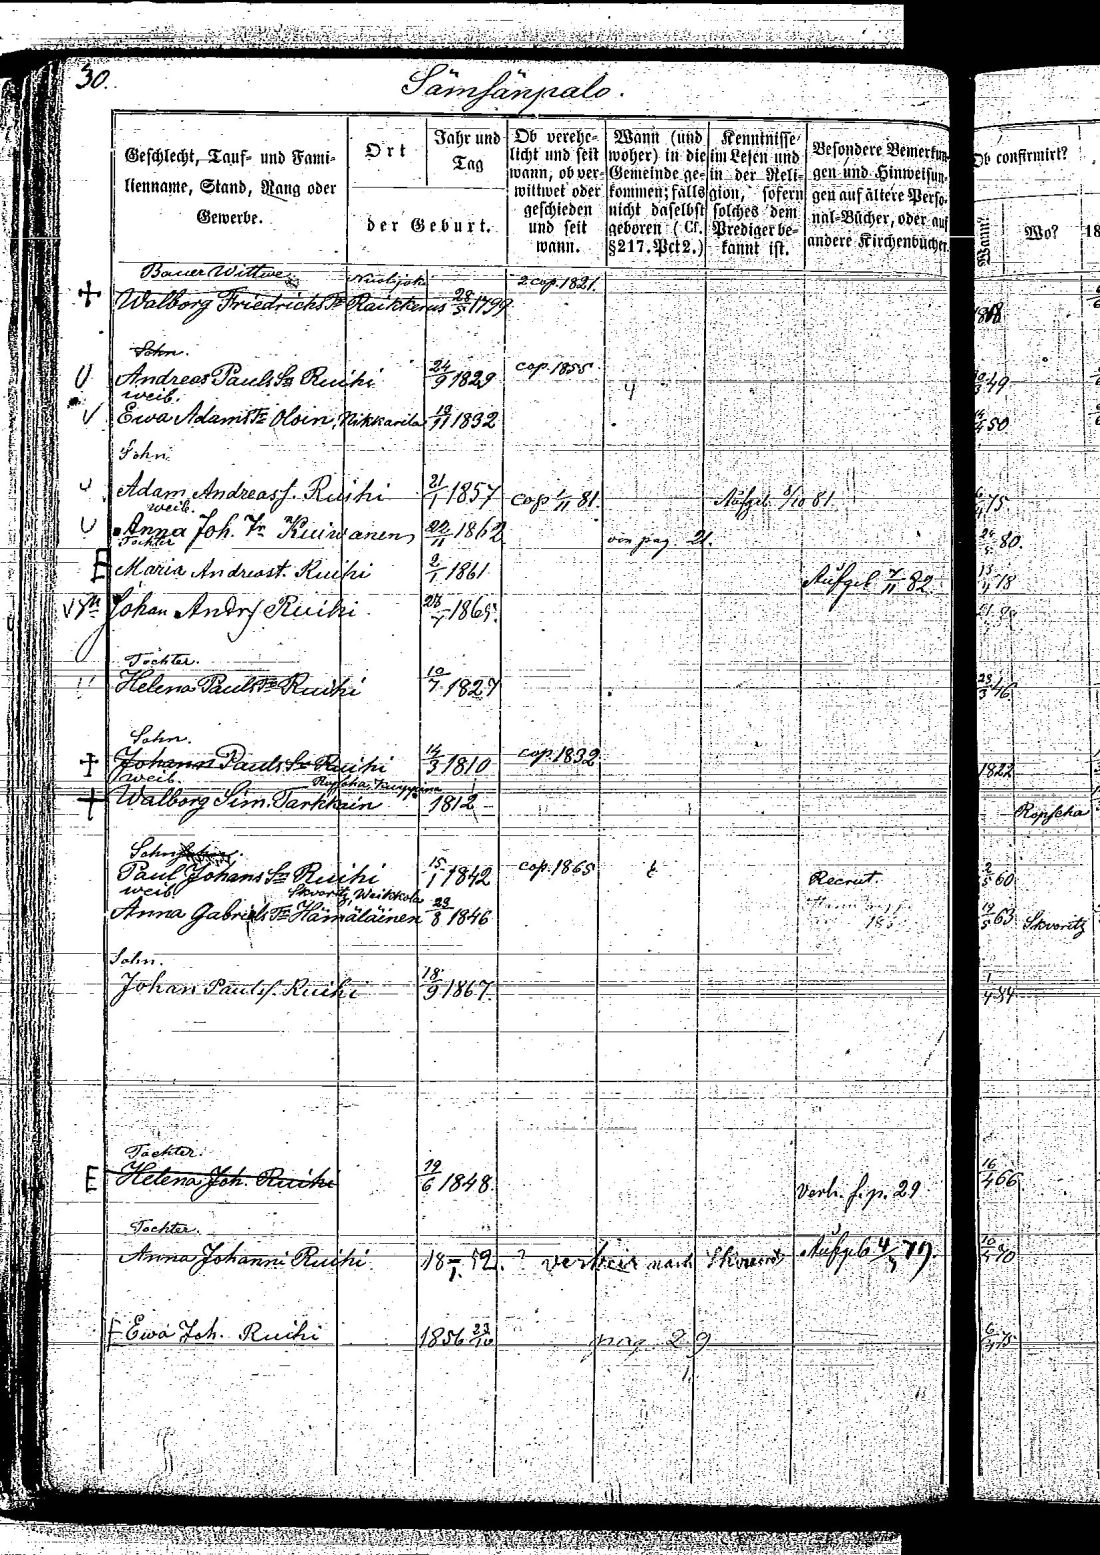 30.
Sämsänpalo.
Geschlecht, Tauf- und Fami-
lienname, Stand, Rang oder
Gewerbe.
Ort
Jahr und
Tag
der Geburt.
Ob verehe-
licht und seit
wann, ob ver-
wittwet oder
geschieden
und seit
wann.
Wann (und
woher) in die
Gemeinde ge-
kommen; falls
nicht daselbst
geboren (Cf.
§217. Pct 2.)
Kenntnisse
im Lesen und
in der Reli-
gion, sofern
solches dem
Prediger be-
kannt ist.
Besondere Bemerkun-
gen und Hinweisun-
gen auf ältere Perso-
nal-Bücher, oder auf
andere Kirchenbücher.
Ob confirmirt?
Wann?
Wo?
18
Bauer Wittwe
2 cop. 1821.
Walborg Friedrichs Tr Raikkerus 28/5 1799
Sohn.
Andreas Pauls Sn Ruihi 24/9 1829 cop. 1855 49
weib.
Ewa Adams Tr Oloin, Nikkarila 1832 50
Sohn.
Adam Andreas s. Ruihi 21/1 1857 cop 1/11 81. Aufgeb 81. 75
weib.
Anna Joh. Tr Kuiwanen 1862 von pag. 21. 80.
Tochter
Maria Andreas t. Ruihi 2/1 1861 Aufgeb 7/11 82 78
Johan Andrs Ruihi 1865.
Tochter.
Helena Pauls Tr Ruihi 10/7 1827 23/3 46
Sohn.
Johans Pauls Sn Ruihi 14/3 1810 cop. 1832 1822
weib.
Walborg Sim. Tarkkain 1812 Ropscha
Sohn
Paul Johans Sn Ruihi 15/1 1842 cop. 1865 Recrut. 60
weib. Skworitz, Weikkola
Anna Gabriels Tr Hämäläinen 23/8 1846 63 Skworitz
Sohn.
Johan Pauls s. Ruihi 18/9 1867. 84
Tochter.
E Helena Joh. Ruihi 19/6 1848. Verh. f. p. 29 16/4 66
Tochter.
Anna Johanni Ruihi 52. ? verheir nach Aufgeb 4/3 79. 70
Ewa Joh. Ruihi 1856 23/10 pag. 29 75